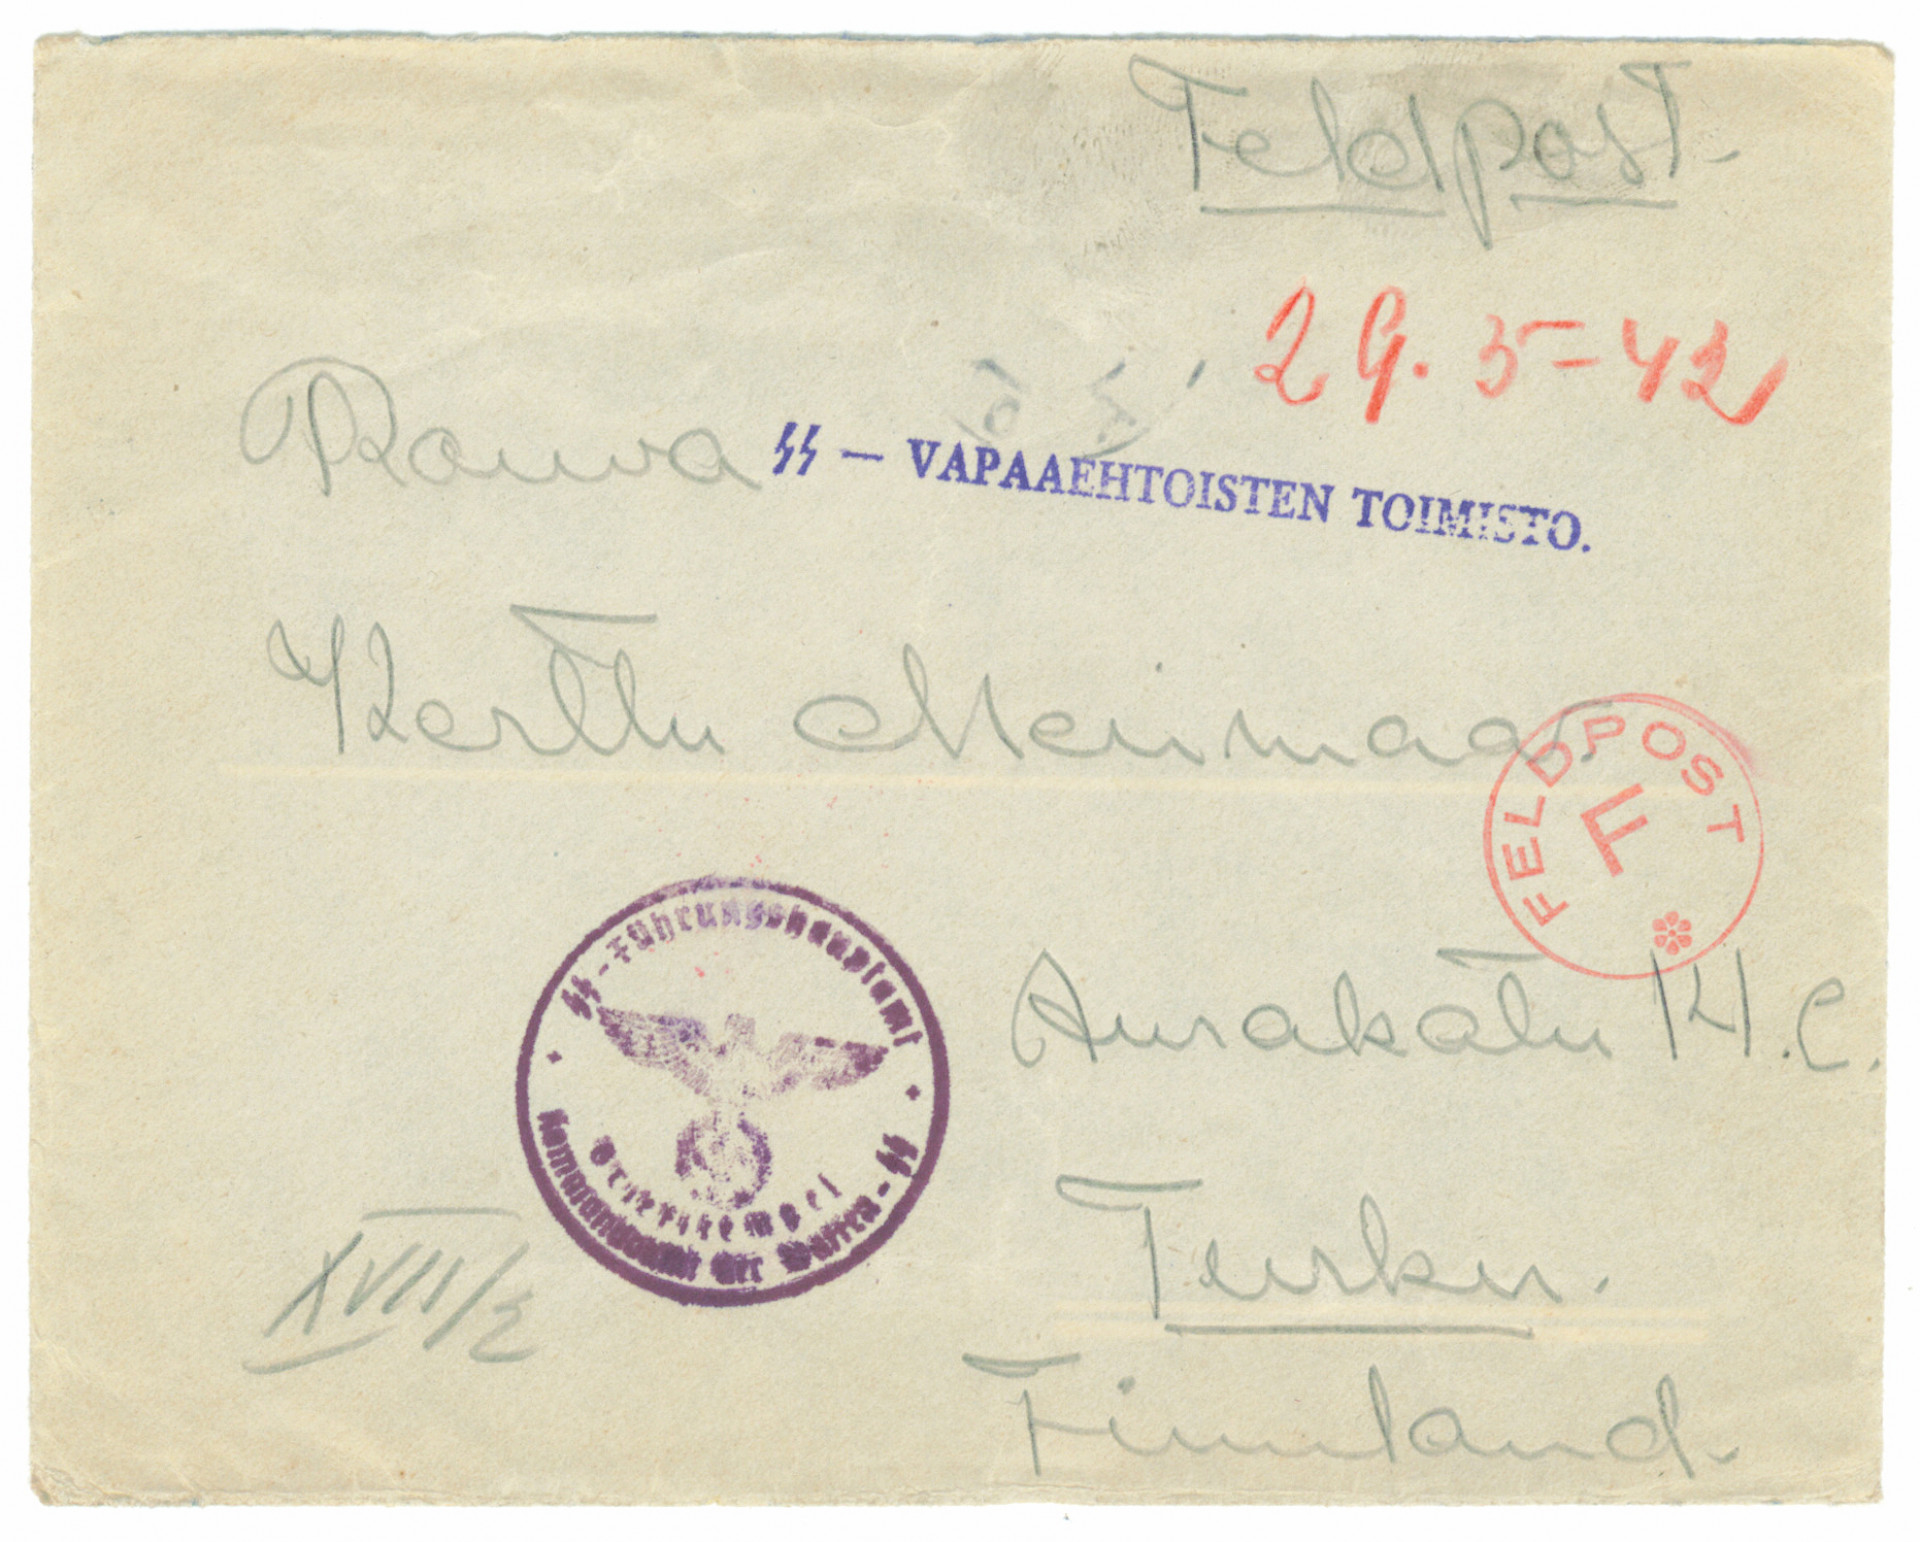 Feldpost.
29.5-42
Rouva
SS – VAPAAEHTOISTEN TOIMISTO.
Kerttu Meinmaa.
FELDPOST
F
SS-Führungshauptamt
Briefstempel
Kommandoamt der Waffen-SS
Aurakatu 14.C.
Turku.
XVII/2
Finnland.